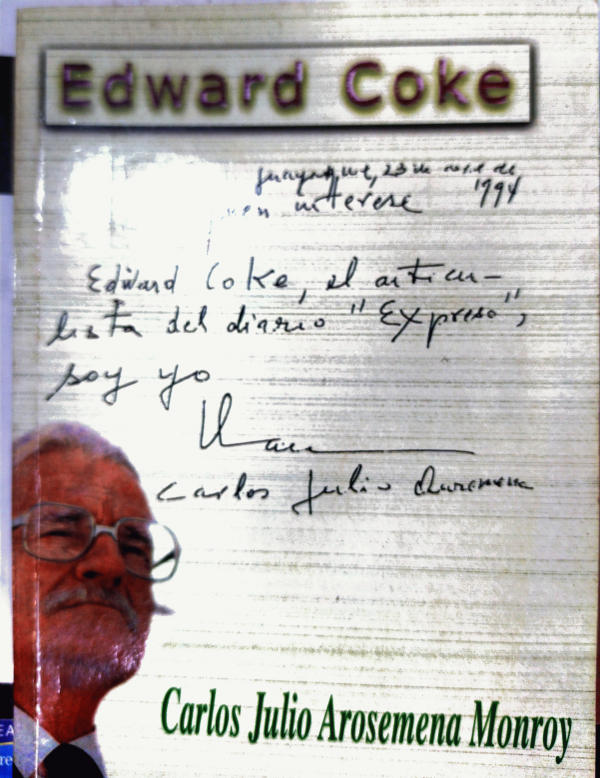 Edward Coke
Guayaquil, 23 de de
1994
Edward Coke, el articu-
lista del diario "Expreso",
soy yo
Carlos Julio Arosemena
Carlos Julio Arosemena Monroy